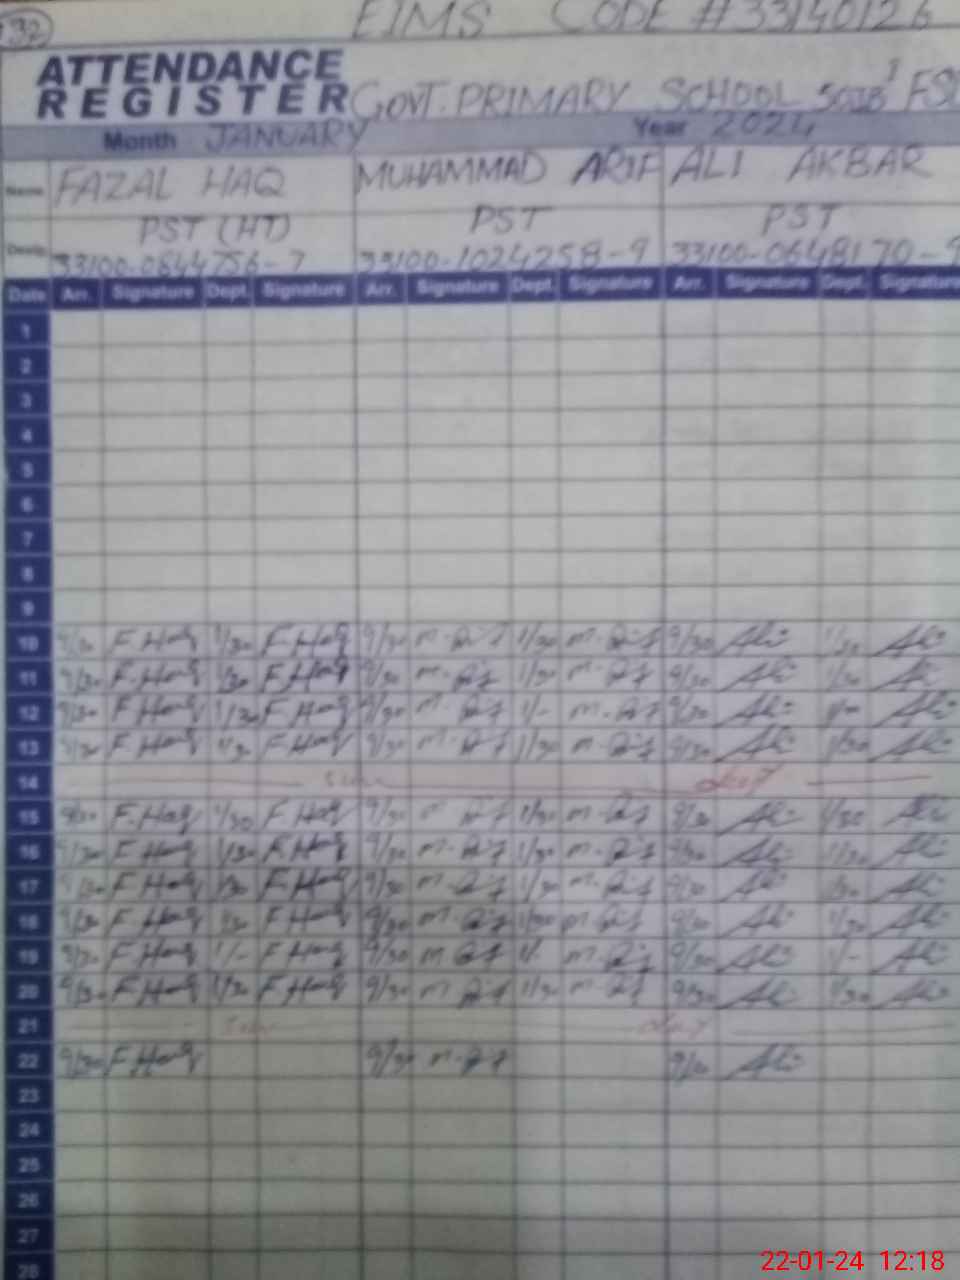 32
EIMS CODE #33140126
ATTENDANCE
REGISTER GOVT. PRIMARY SCHOOL
Month JANUARY Year 2024
Name FAZAL HAQ MUHAMMAD ARIF ALI AKBAR
PST (HT) PST PST
33100-0644756-7 33100-1024258-9 33100-0648170-9
Date Arr. Signature Dept. Signature Arr. Signature Dept. Signature Arr. Signature Dept. Signature
1
2
3
4
5
6
7
8
9
10 9/30 F.Haq 1/30 F.Haq 9/30 M. Arif 1/30 M. Arif 9/30 Ali 1/30 Ali
11 9/30 F.Haq 1/30 F.Haq 9/30 M. Arif 1/30 M. Arif 9/30 Ali 1/30 Ali
12 9/30 F.Haq 1/30 F.Haq 9/30 M. Arif 1/- M. Arif 9/30 Ali Ali
13 9/30 F.Haq 1/30 F.Haq 9/30 M. Arif 1/30 M. Arif 9/30 Ali 1/30 Ali
14 Sun day
15 9/30 F.Haq 1/30 F.Haq 9/30 M. Arif 1/30 M. Arif 9/30 Ali 1/30 Ali
16 9/30 F.Haq 1/30 F.Haq 9/30 M. Arif 1/30 M. Arif 9/30 Ali 1/30 Ali
17 9/30 F.Haq 1/30 F.Haq 9/30 M. Arif 1/30 M. Arif 9/30 Ali 1/30 Ali
18 9/30 F.Haq 1/30 F.Haq 9/30 M. Arif 1/30 M. Arif 9/30 Ali 1/30 Ali
19 9/30 F.Haq 1/- F.Haq 9/30 M. Arif 1/- M. Arif 9/30 Ali 1/- Ali
20 9/30 F.Haq 1/30 F.Haq 9/30 M. Arif 1/30 M. Arif 9/30 Ali 1/30 Ali
21 Sun day
22 9/30 F.Haq 9/30 M. Arif 9/30 Ali
23
24
25
26
27
28
22-01-24 12:18